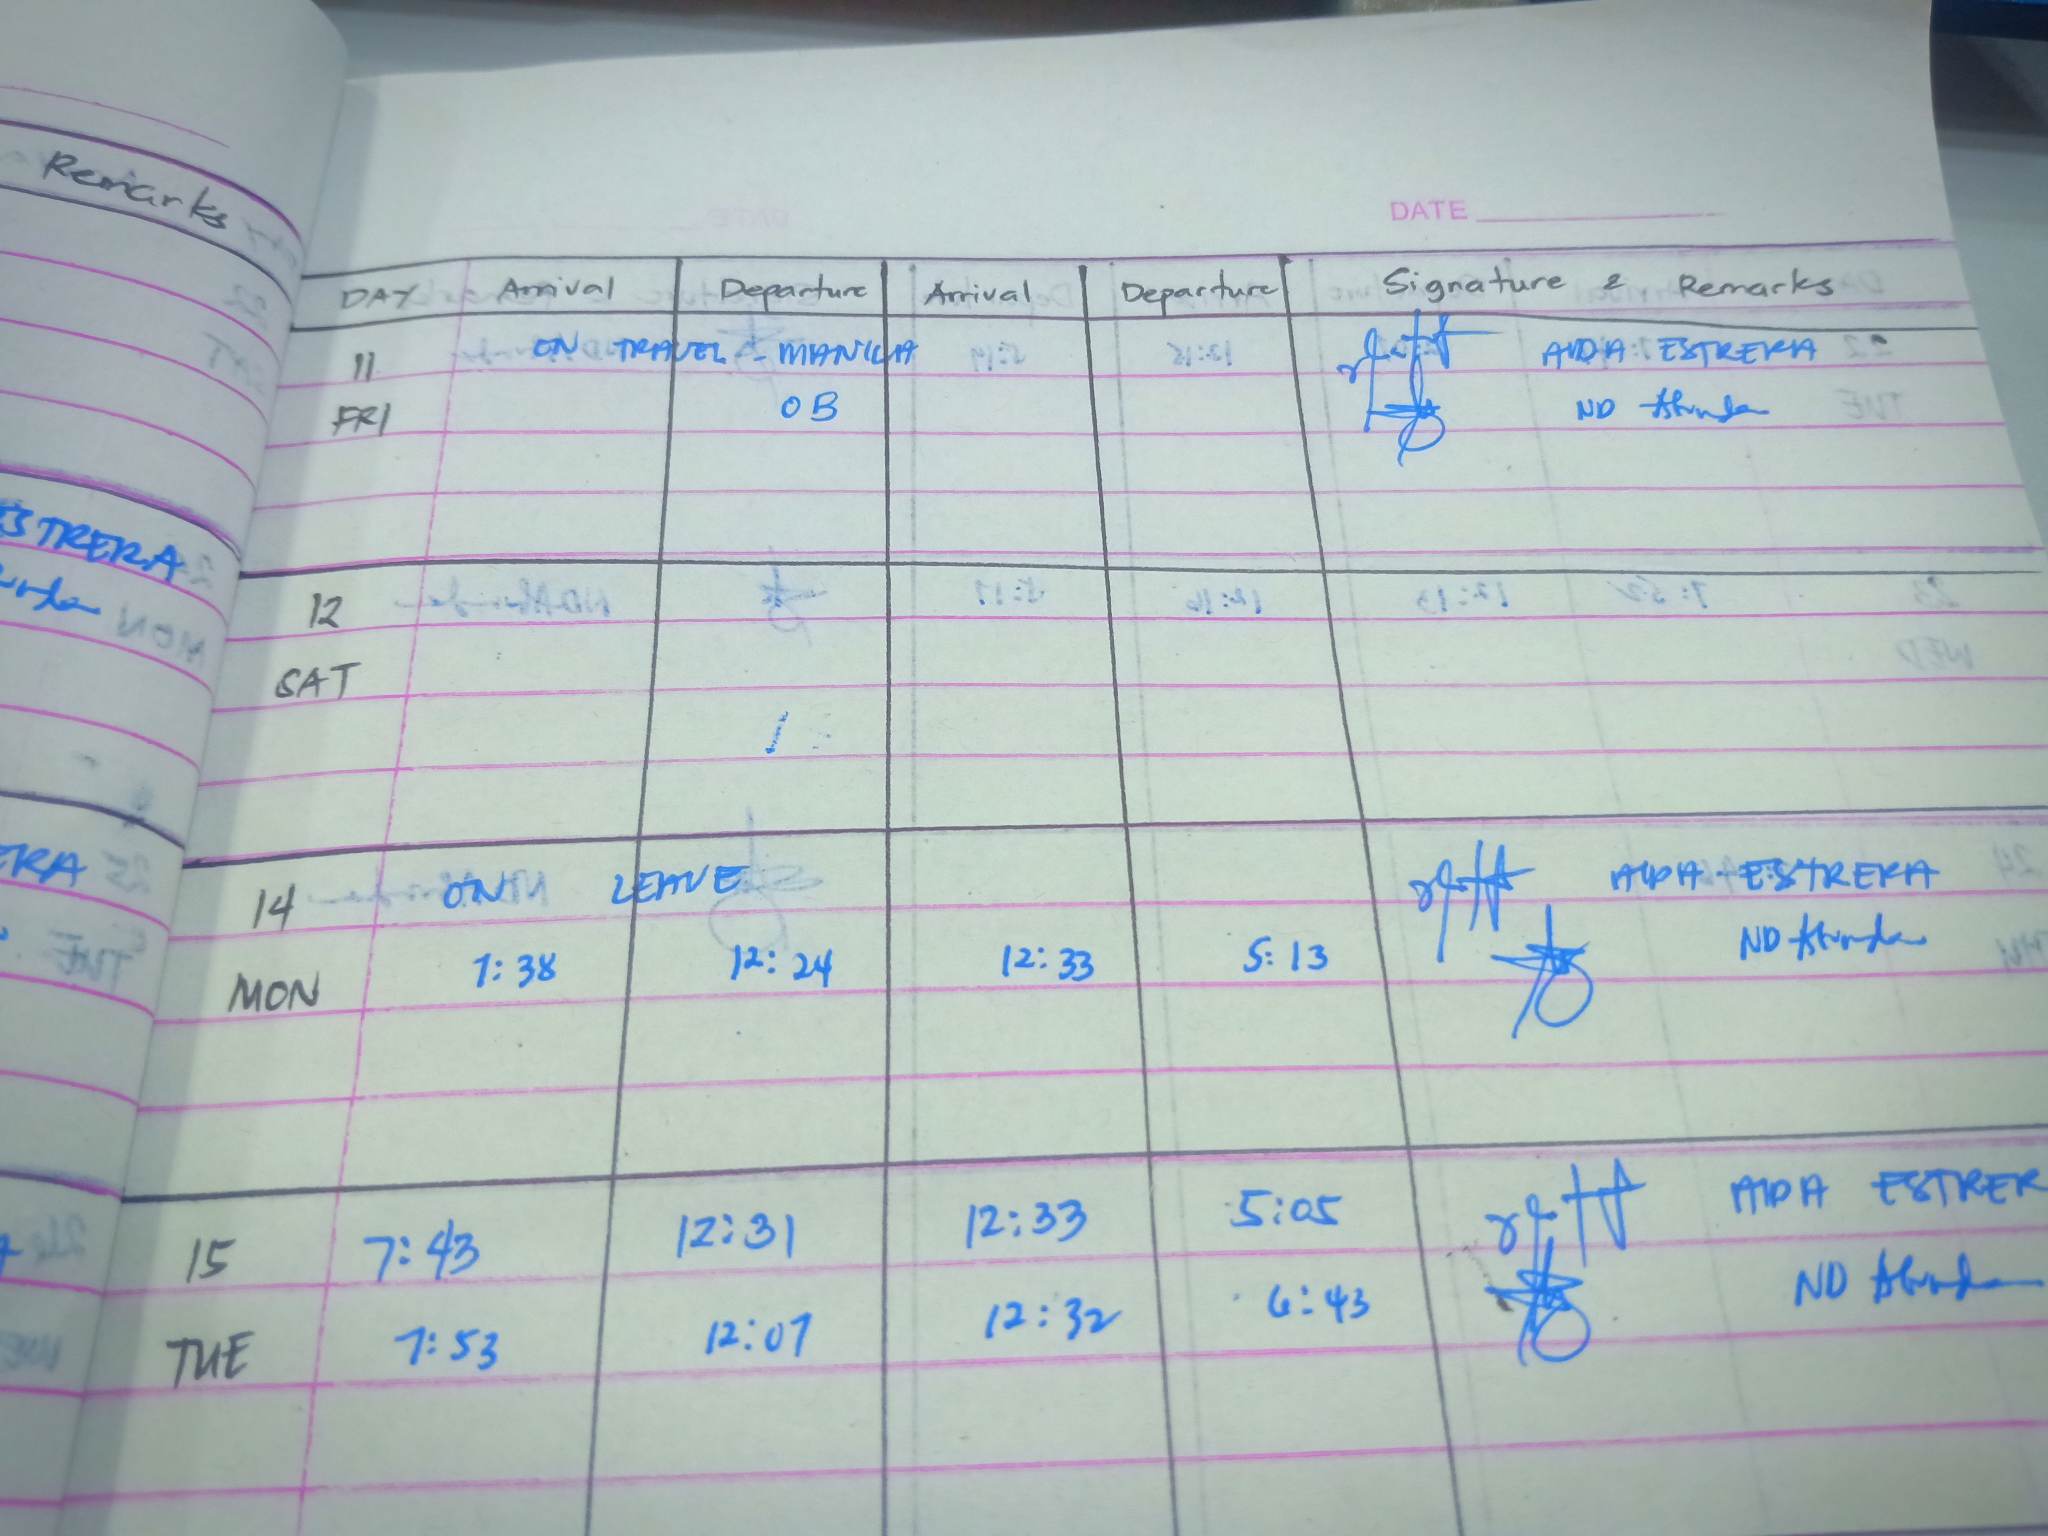 Remarks
ESTRERA
ERA
DATE
DAY Arrival Departure Arrival Departure Signature & Remarks
11 ON TRAVEL - MANILA AIDA ESTRERA
FRI OB ND
12
SAT
14 ON LEAVE AIDA ESTRERA
MON 7:38 12:24 12:33 5:13 ND
15 7:43 12:31 12:33 5:05 AIDA ESTRER
TUE 7:53 12:07 12:32 6:43 ND